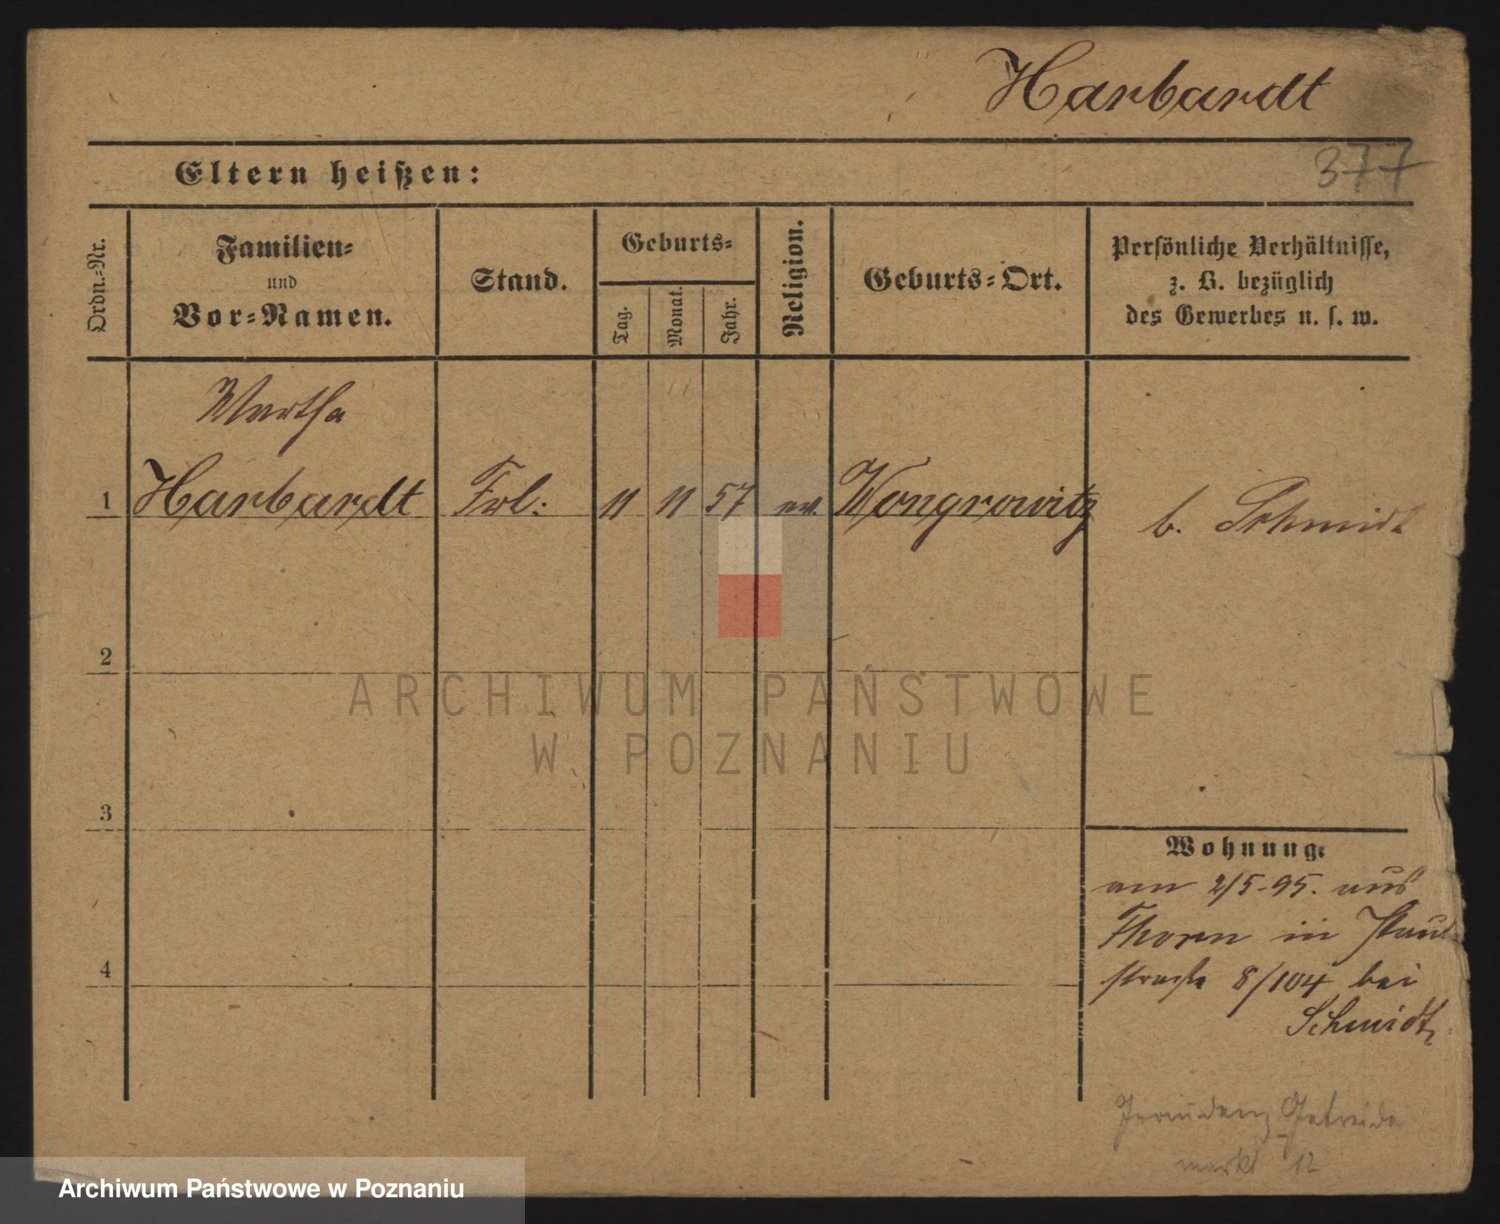 Harbardt
377
Eltern heißen:
Ordn.-Nr.
Familien-
und
Vor-Namen.
Stand.
Geburts-
Tag.
Monat.
Jahr.
Religion.
Geburts-Ort.
Persönliche Verhältnisse,
z. B. bezüglich
des Gewerbes u. s. w.
Martha
1 Harbardt Frl. 11 11 57 ev. Wongrowitz b. Schmidt
2
3
4
Wohnung.
am 2/5.95. aus
Thorn in Paul
straße 8/104 bei
Schmidt
Graudenz Getreide
markt 12
ARCHIWUM PAŃSTWOWE
W POZNANIU
Archiwum Państwowe w Poznaniu